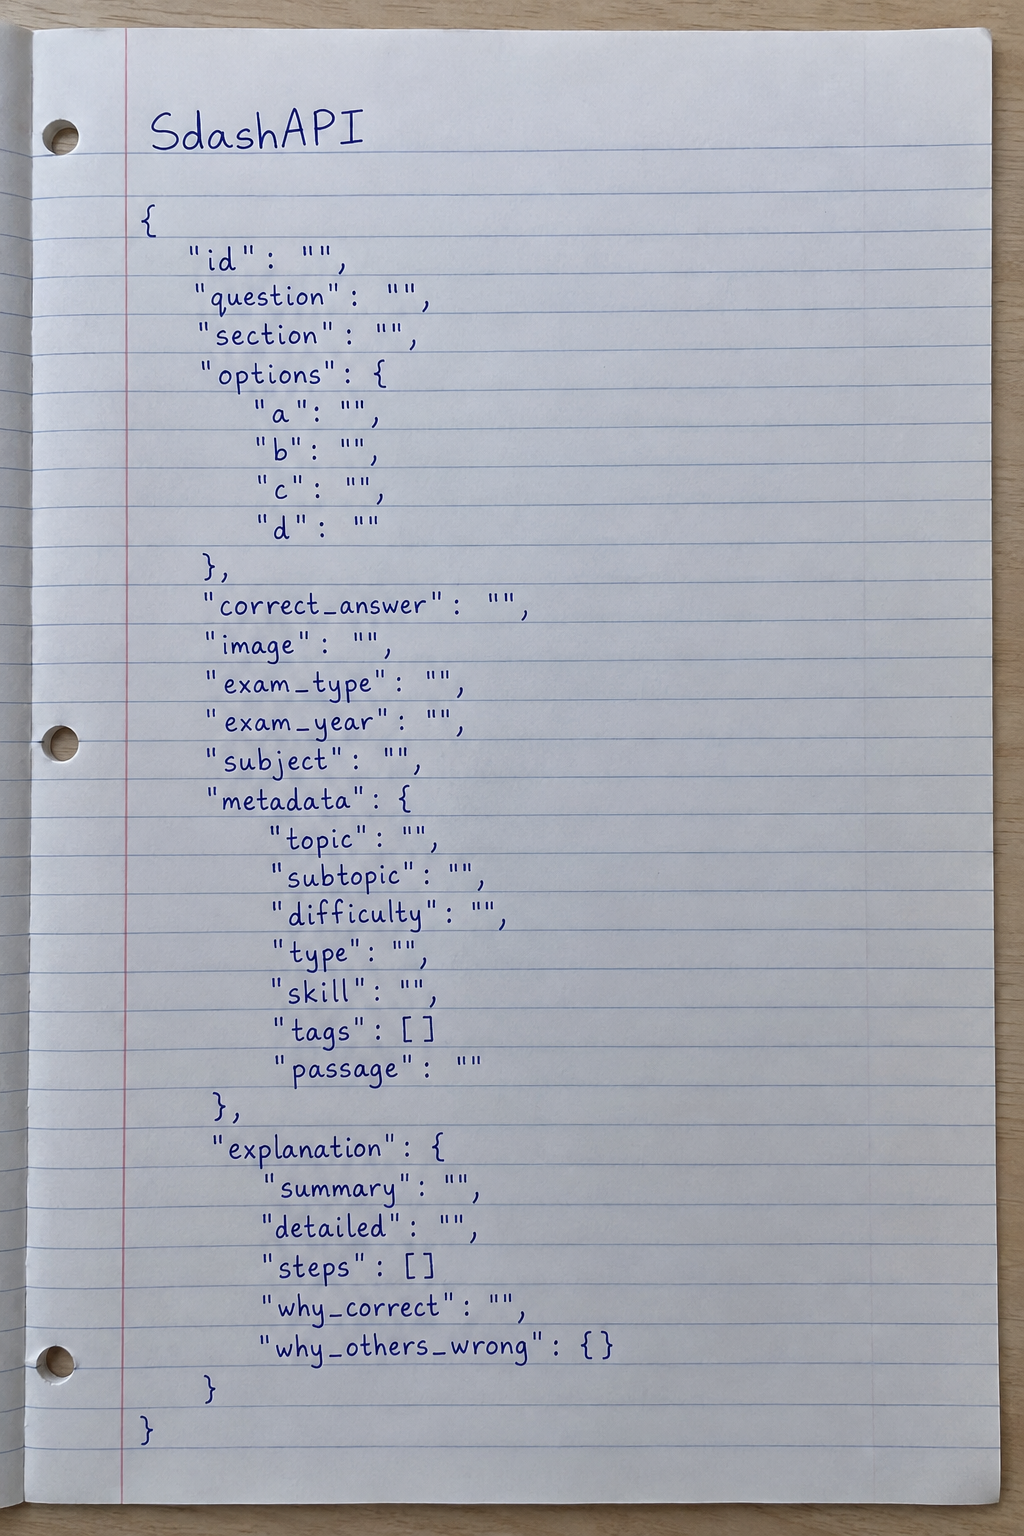 SdashAPI
{
"id": "",
"question": "",
"section": "",
"options": {
"a": "",
"b": "",
"c": "",
"d": ""
},
"correct_answer": "",
"image": "",
"exam_type": "",
"exam_year": "",
"subject": "",
"metadata": {
"topic": "",
"subtopic": "",
"difficulty": "",
"type": "",
"skill": "",
"tags": []
"passage": ""
},
"explanation": {
"summary": "",
"detailed": "",
"steps": []
"why_correct": "",
"why_others_wrong": {}
}
}